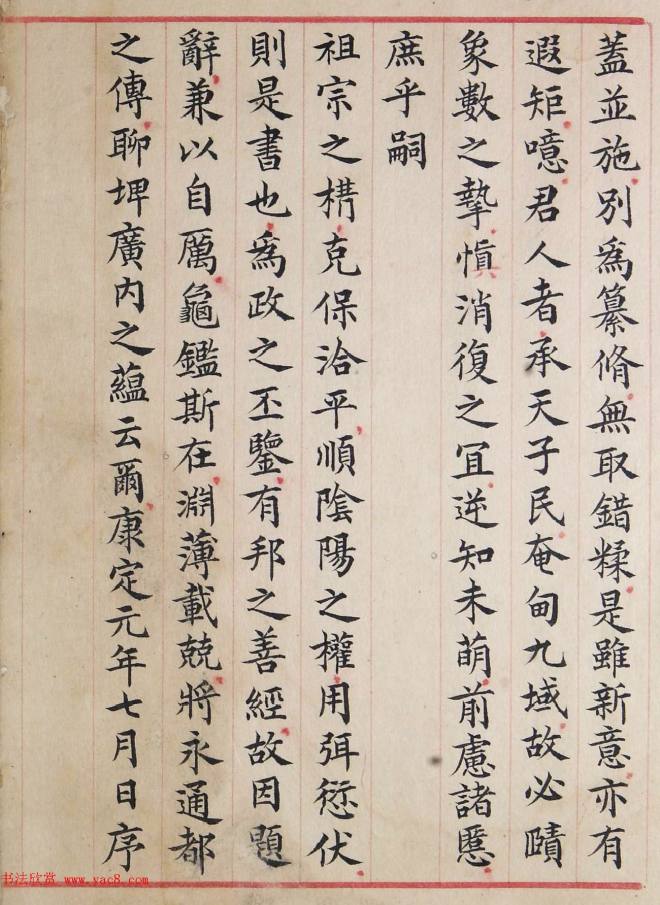 蓋並施別為纂脩無取錯糅是雖新意亦有
遐矩噫君人者承天子民奄甸九域故必賾
象數之摯慎消復之宜逆知未萌前慮諸慝
庶乎嗣
祖宗之構克保洽平順陰陽之權用弭愆伏
則是書也為政之丕鑒有邦之善經故因題
辭兼以自厲龜鑑斯在淵薄載兢將永通都
之傳聊埤廣內之蘊云爾康定元年七月日序
书法欣赏 www.yac8.com